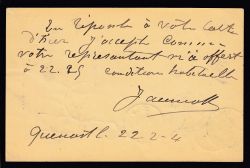 En réponse à votre carte
d'hier j'accepte comme
votre représentant m'a offert
à 22.75 conditions habituelles
22-2-4